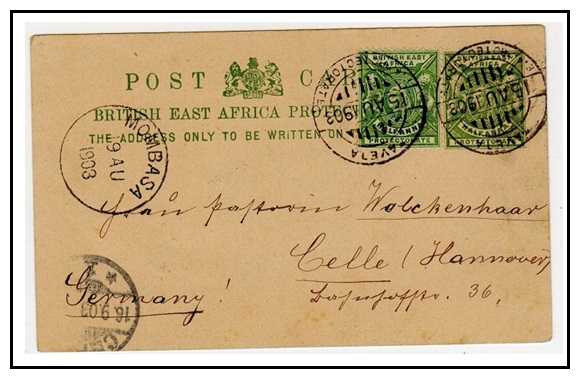 POST CARD
BRITISH EAST AFRICA PROTE
THE ADDRESS ONLY TO BE WRITTEN ON
BRITISH EAST AFRICA
HALF ANNA
PROTECTORATE
BRITISH EAST AFRICA
HALF ANNA
PROTECTORATE
TAVETA
15 AU 1903
15 AU 1903
MOMBASA
19 AU
1903
Frau Pastorin Wolckenhaar
Celle (Hannover)
Germany!
Bahnhofstr. 36.
16.9.03